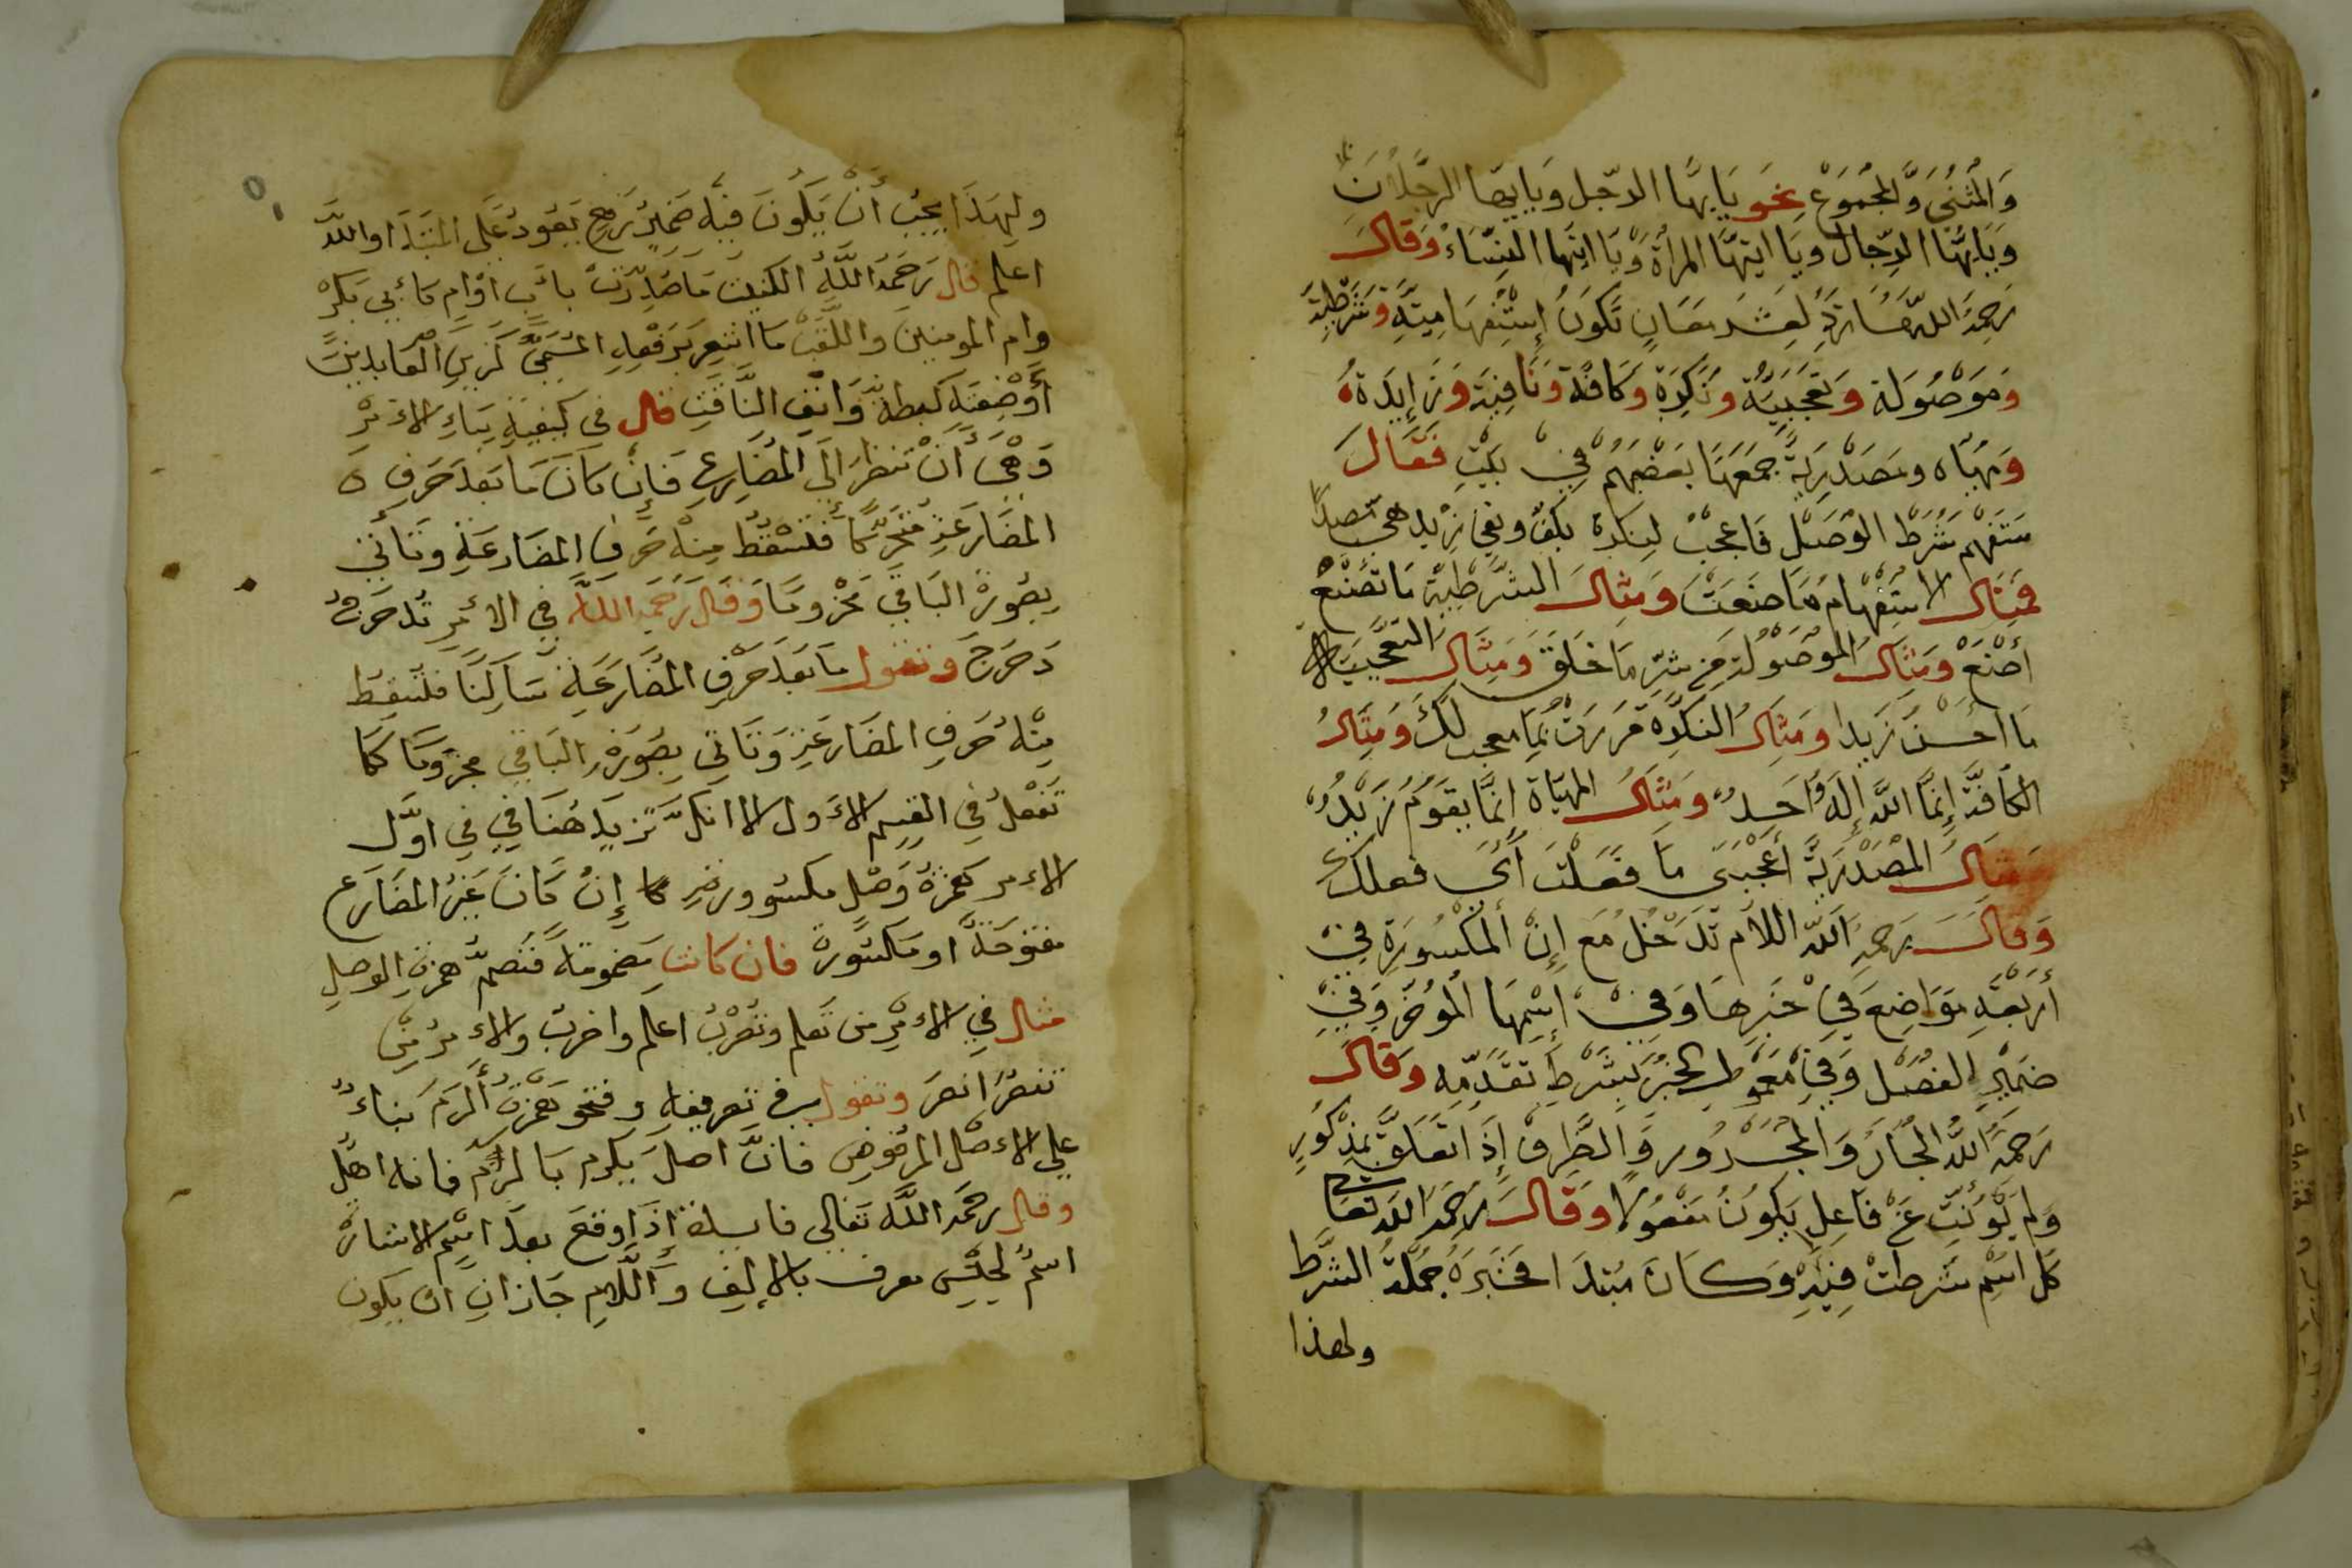 وَالمُثَنَّى وَالمَجْمُوعُ نحو يَا أيهَا الرّجل وَيَا ايهَا الرَّجُلانِ
وَيَا ايُّهَا الرِّجال ويَا ايتهَا المرأة وَيَا ايتها النِّسَاءُ وَقال
رَحِمَهُ اللّه مَا تَرِدُ لِعَشر مَعَانٍ تَكونُ إِسْتِفهَامِيّةٍ وَشَرْطِيَّة
وَمَوْصُولَة وَتَعَجُّبِيَّة وَنَكِرَة وَكَافَّة وَنَافِيَة وَزَائِدَةُ
وَمُهيَّاه ومَصْدَرِيَّة جَمَعَهَا بَعْضُهُمْ فِيْ بَيْتِ فَقَالَ
سَتَفهم شَرْطَ الوَصْل فَاعجَبْ لِنكرة بكف ونفي زيد هيّ مصدرا
فمثال الاسْتِفْهَام مَا صَنَعْتَ وَمِثال الشّرطِيّة مَا تَصْنَعْ
أصْنَعْ وَمِثَال المَوْصُولَة مِن شَرِّ مَا خَلَقَ وَمِثَال التعَجّبيّة
مَا أحْسَنَ زَيدا وَمثال النكرة مَرَرتُ بِمَا معجب لكَ وَمِثالُ
الكَافَّة إِنَّمَا اللَّه إِلَه وَاحِدٌ وَمثال المهيّاة انَّمَا يَقوُمُ زَيْدٌ
وَمثال المصْدَرِيَّة أعْجَبَنى مَا فَعَلْتَ أَىْ فعلك
وَقال رَحِمَهُ اللّه اللاَّم تَدخُلُ مَع إِنَّ المكْسُورَةِ فِيْ
أرْبَعَةِ مَوَاضِعَ فِيْ خَبَرِهَا وَفِيْ إِسْمِهَا المُؤخّر وَفِيْ
ضَمِيْرِ الفَصْل وَفِيْ مَعمُول الخَبَر بِشَرْط تقَدّمِه وَقال
رَحِمَهُ اللَّه الجَارُ وَالمَجْرُور وَالظَّرف إِذَا تَعَلَّقَ بمذكُورٍ
وَلم يَنُوبُ عَنْ فَاعِلٍ يَكُونُ مَفعُولا وَقَال رَحِمَهُ اللَّه تعَالى
كل اسْمٍ شَرطت فِيْهِ وَكَانَ مُبْتَدَا فخَبَرهُ جُملَةُ الشَّرط
ولهذا
ولِهَذَا يَجِبُ أَنْ يَكُونَ فِيْه ضَمِيْرٌ يَعُودُ عَلَى المبْتَدَا واللّه
اعلم قال رَحِمَهُ اللَّهُ الكنية مَا صُدّرَتْ بأب اوْ أم كَأبى بَكر
وام المومنين واللَّقَبْ مَا اشعر برفعة المسَمَّى كَزَينِ العَابدين
أوْ ضِعَتِه كبطة وَانف النَّاقَة قال فى كيْفِيَةِ بِنَاءِ الأمر
وَهْىَ أنْ تَنظرَ الَى المُضَارِع فَإِنْ كَانَ مَا بَعْدَ حَرفِ
المضَارَعَةِ مُتحَرِّكًا فَتُسْقُط مِنْهُ حَرفَ المضَارعَةِ وتَأتي
بِصُورةِ البَاقي مَجْزومًا وَقال رَحِمَهُ اللَّه في الأمر تُدَحرجُ
دَحرَجَ وتقول مَا بَعْدَ حَرْفِ المُضَارَعَةِ سَاكِنًا فتسْقط
مِنْهُ حَرفِ المضَارَعَةِ وَتَاتي بِصُورَةِ البَاقي مجزومًا كَمَا
تَفعَلُ فِي القسم الأوَل الا انكَ تَزيدَ هُنَا في في اوَّل
الأمر همزة وَصْل مكسورة إِنْ كَانَ عَيْنُ المضَارع
مفتوحَةً او مَكسُورة فان كانت مضمومة فَتُضمّ همزة الوصلِ
مثال فِي الأمر من تَعلم وتضْربُ اعلم واضربْ والأمر مِن
تنصُرُ انصرَ وتقول في تعريفه وفتحوا همزة أكرم بناءً
على الأصل المرفوض فانَّ اصلَ يكرم يَأكرم فانه اهمل
وقال رحمَهُ اللَّه تَعَالى فايدة إِذَا وقعَ بعدَ اسْم الاشارة
اسمُ لجِنْس معرف بالالِف وَاللّام جَازَ ان يكون